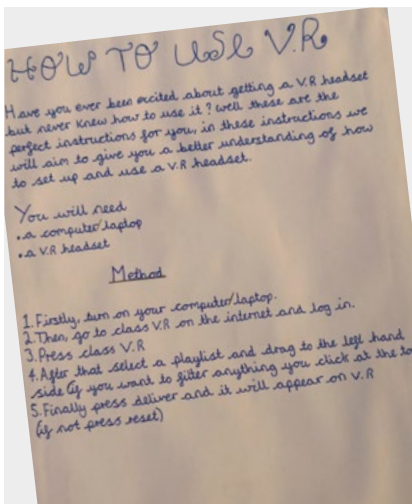 HOW TO USE V.R
Have you ever been excited about getting a V.R headset
but never knew how to use it? Well these are the
perfect instructions for you, in these instructions we
will aim to give you a better understanding of how
to set up and use a V.R headset.
You will need
•a computer/laptop
•a V.R headset
Method
1.Firstly, turn on your computer/laptop.
2.Then, go to class V.R on the internet and log in.
3.Press class V.R
4.After that select a playlist and drag to the left hand
side (if you want to filter anything you click at the to
5.Finally press deliver and it will appear on V.R
(if not press reset)